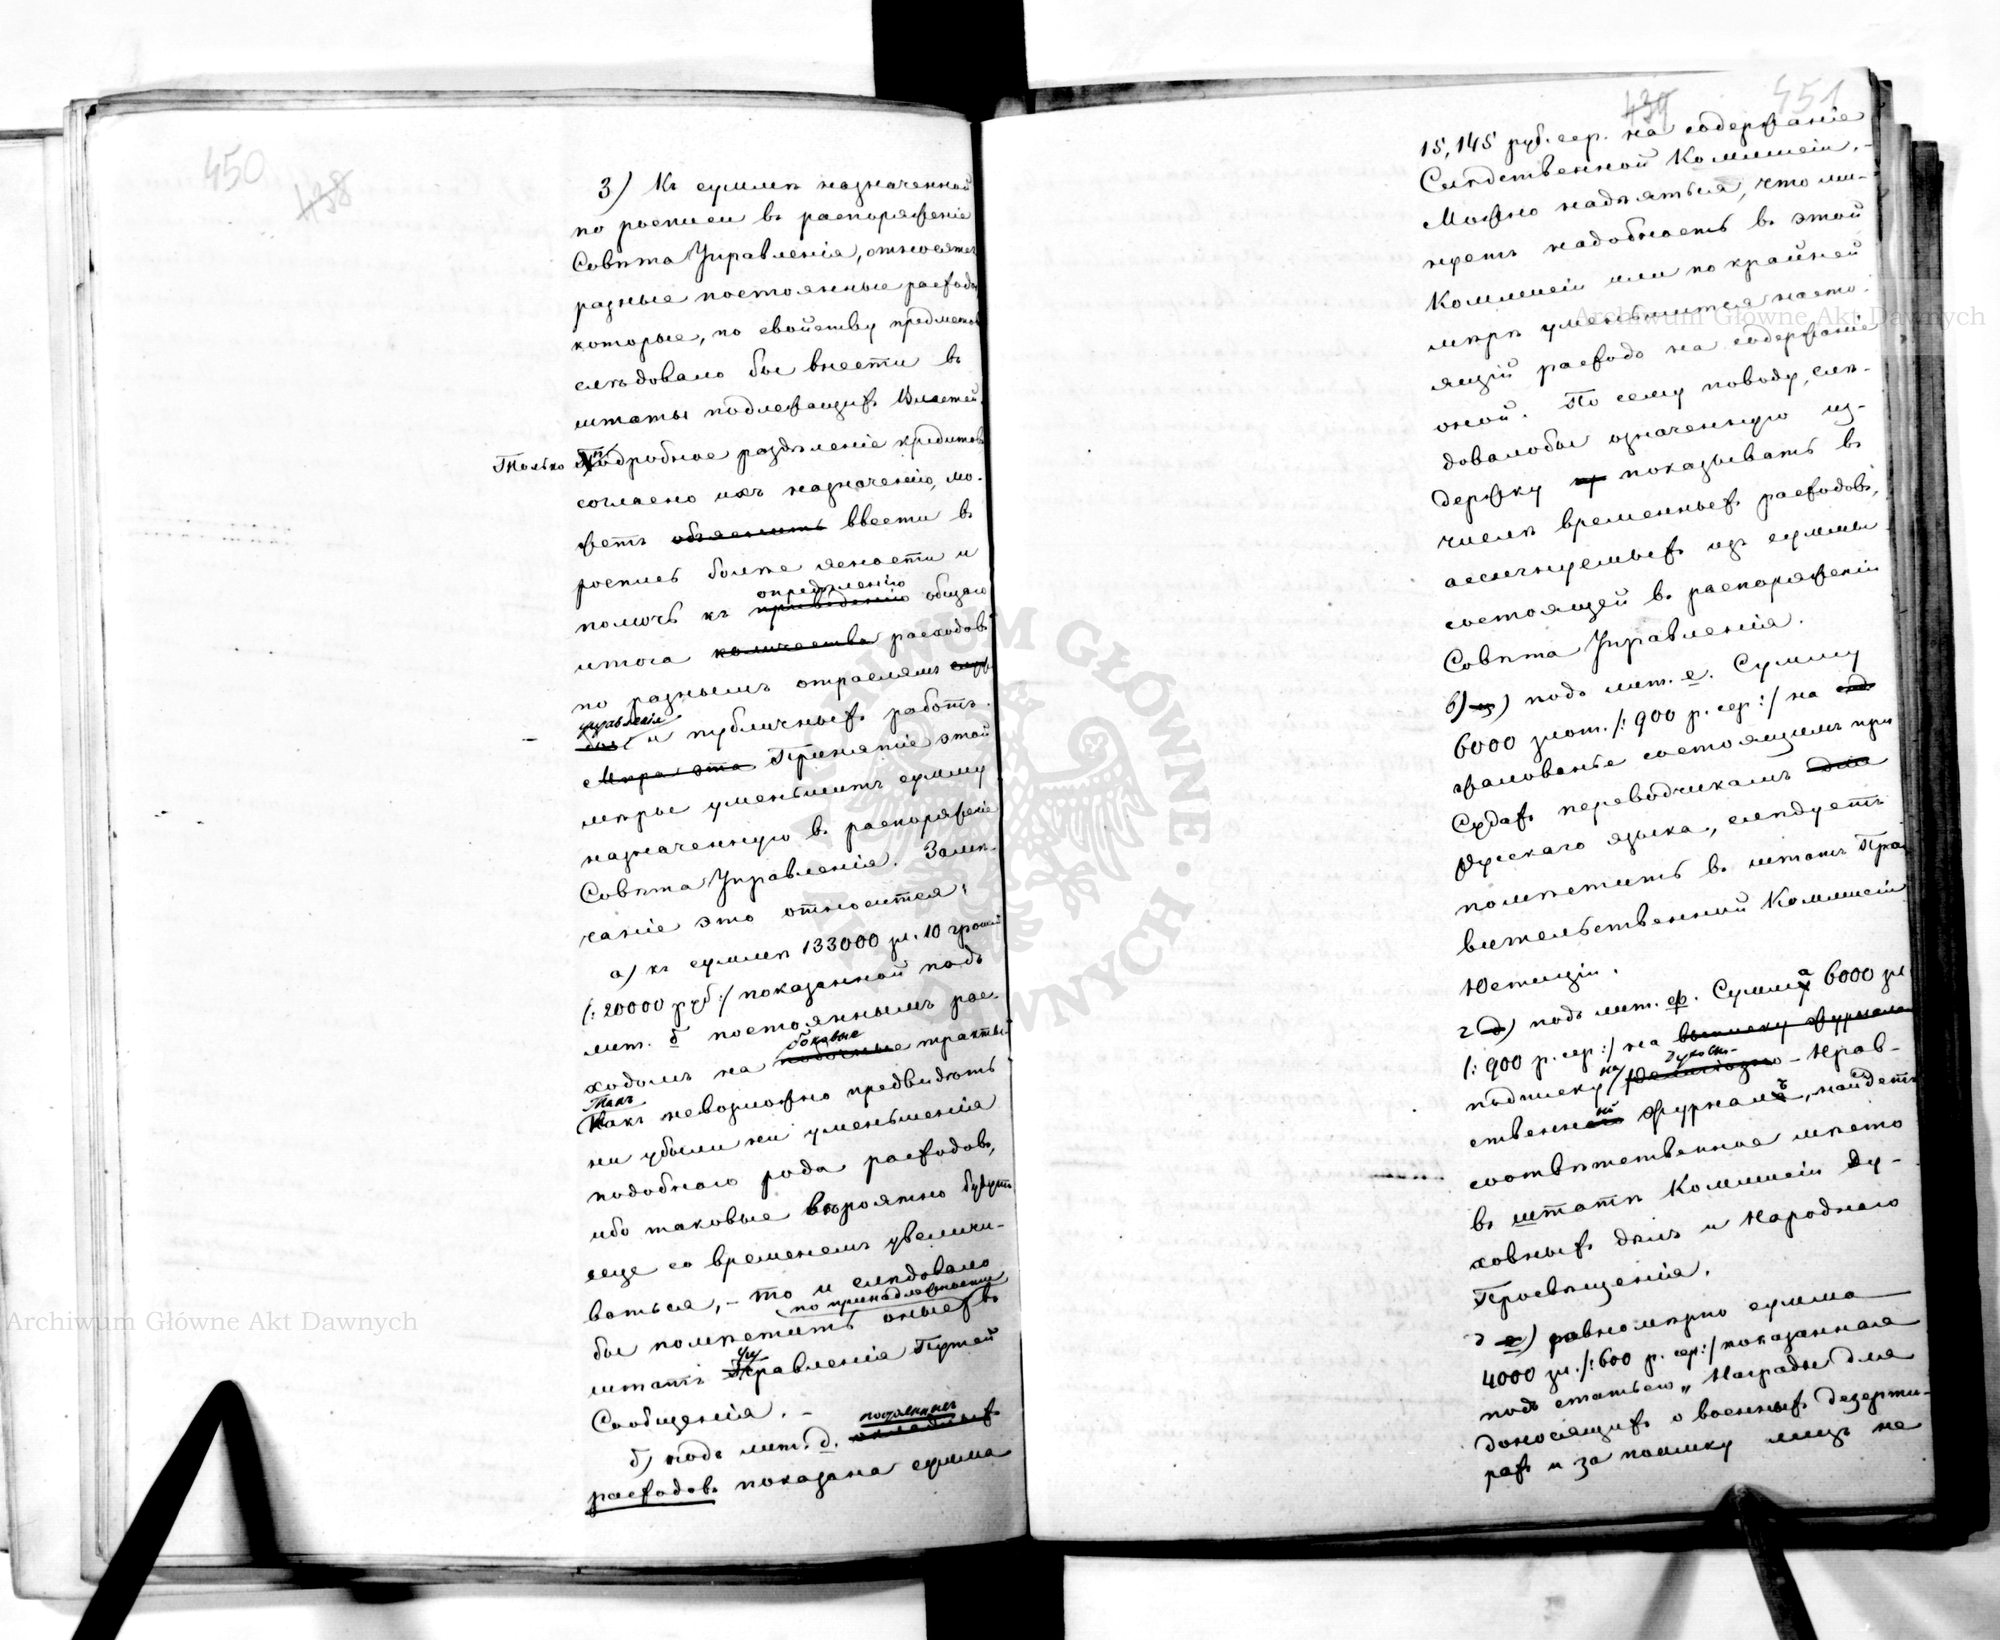 450
438
3) Къ суммѣ назначенной
по росписи въ распоряженіе
Совѣта Управленія, относятся
разные постоянные расходы
которые, по свойству предметовъ
слѣдовало бы внести въ
штаты подлежащихъ Властей.
Только подробное раздѣленіе кредитовъ
согласно ихъ назначенію, мо-
жетъ объяснить ввести въ
роспись болѣе ясности и
опредѣленію
помочь къ приведенію общаго
итога количества расходовъ
по разнымъ отраслямъ
управленія
и публичныхъ работъ.
Мѣра эта Принятіе этой
мѣры уменьшитъ сумму
назначенную въ распоряженіе
Совѣта Управленія. Замѣ-
чаніе это относится:
а) къ суммѣ 133000 зл. 10 грошей
/: 20000 руб:/ показанной подъ
лит. б постояннымъ рас-
боковые
ходомъ на побочные тракты
Такъ
Какъ невозможно предвидѣть
ни убыли ни уменьшенія
подобнаго рода расходовъ,
ибо таковые вѣроятно будутъ
еще со временемъ увеличи-
ваться, - то и слѣдовало
по принадлежности
бы помѣстить оные въ
штатъ Управленія Путей
Сообщенія. -
б) подъ лит. д.
расходовъ показана сумма
439
451
15,145 руб. сер. на содержаніе
Слѣдственной Коммисіи. -
Можно надѣяться, что ми-
нуетъ надобность въ этой
Коммисіи или по крайней
мѣрѣ уменьшится насто-
ящій расходъ на содержаніе
оной. По сему поводу, слѣ-
довалобы означенную из-
держку показывать въ
числѣ временныхъ расходовъ,
ассигнуемыхъ изъ суммы
состоящей въ распоряженіи
Совѣта Управленія.
в) подъ лит. е. Сумму
6000 злот. /: 900 р. сер:/ на
жалованье состоящимъ при
Судахъ переводчикамъ для
Русскаго языка, слѣдуетъ
помѣстить въ штатъ Пра-
вительственной Коммисіи
Юстиціи.
г д) подъ лит. ф. Сумма 6000 зл
/: 900 р. сер:/ на выписку журнала
на духовно-
подписку Религіозно - Нрав-
ственный журналъ, найдетъ
соотвѣтственное мѣсто
въ штатѣ Коммисіи Ду-
ховныхъ дѣлъ и Народнаго
Просвѣщенія.
д е) равномѣрно сумма
4000 зл. /: 600 р. сер:/ показанная
подъ статьею „ Награды для
доносящихъ о военныхъ дезерти-
рахъ и за поимку лицъ не
Archiwum Główne Akt Dawnych
Archiwum Główne Akt Dawnych
ARCHIWUM GŁÓWNE AKT DAWNYCH